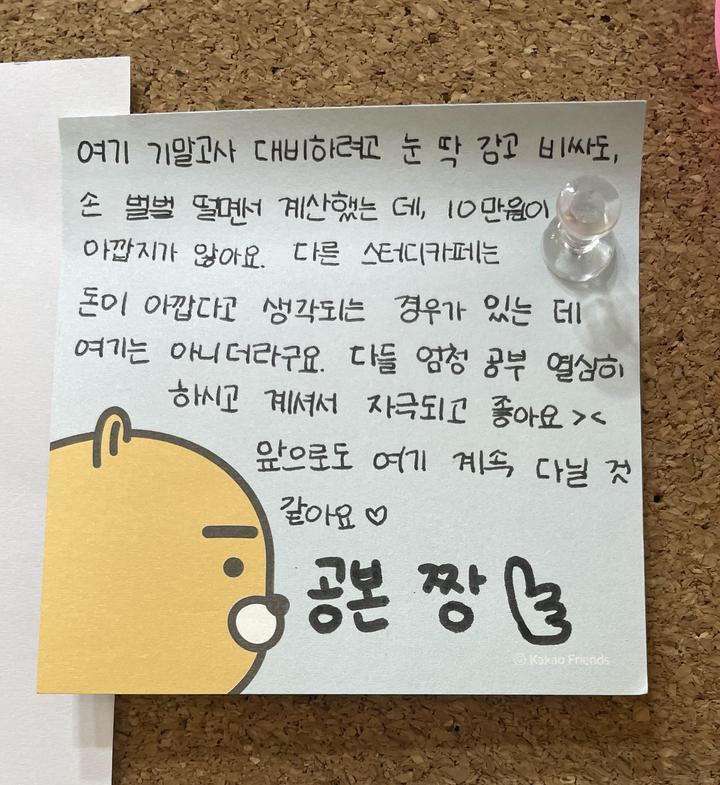 여기 기말고사 대비하려고 눈 딱 감고 비싸도,
손 벌벌 떨면서 계산했는 데, 10만원이
아깝지가 않아요. 다른 스터디카페는
돈이 아깝다고 생각되는 경우가 있는 데
여기는 아니더라구요. 다들 엄청 공부 열심히
하시고 계셔서 자극되고 좋아요 ><
앞으로도 여기 계속 다닐 것
같아요 ♡
공본 짱
© Kakao Friends